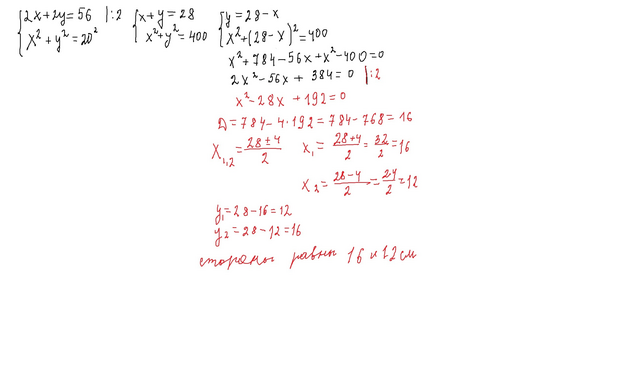 {2x+2y=56 |:2 {x+y=28 {y=28-x
x²+y²=20² x²+y²=400 x²+(28-x)²=400
x²+784-56x+x²-400=0
2x²-56x+384=0 |:2
x²-28x+192=0
D=784-4·192=784-768=16
x₁,₂=(28±4)/2 x₁=(28+4)/2=32/2=16
x₂=(28-4)/2=24/2=12
y₁=28-16=12
y₂=28-12=16
стороны равны 16 и 12 см